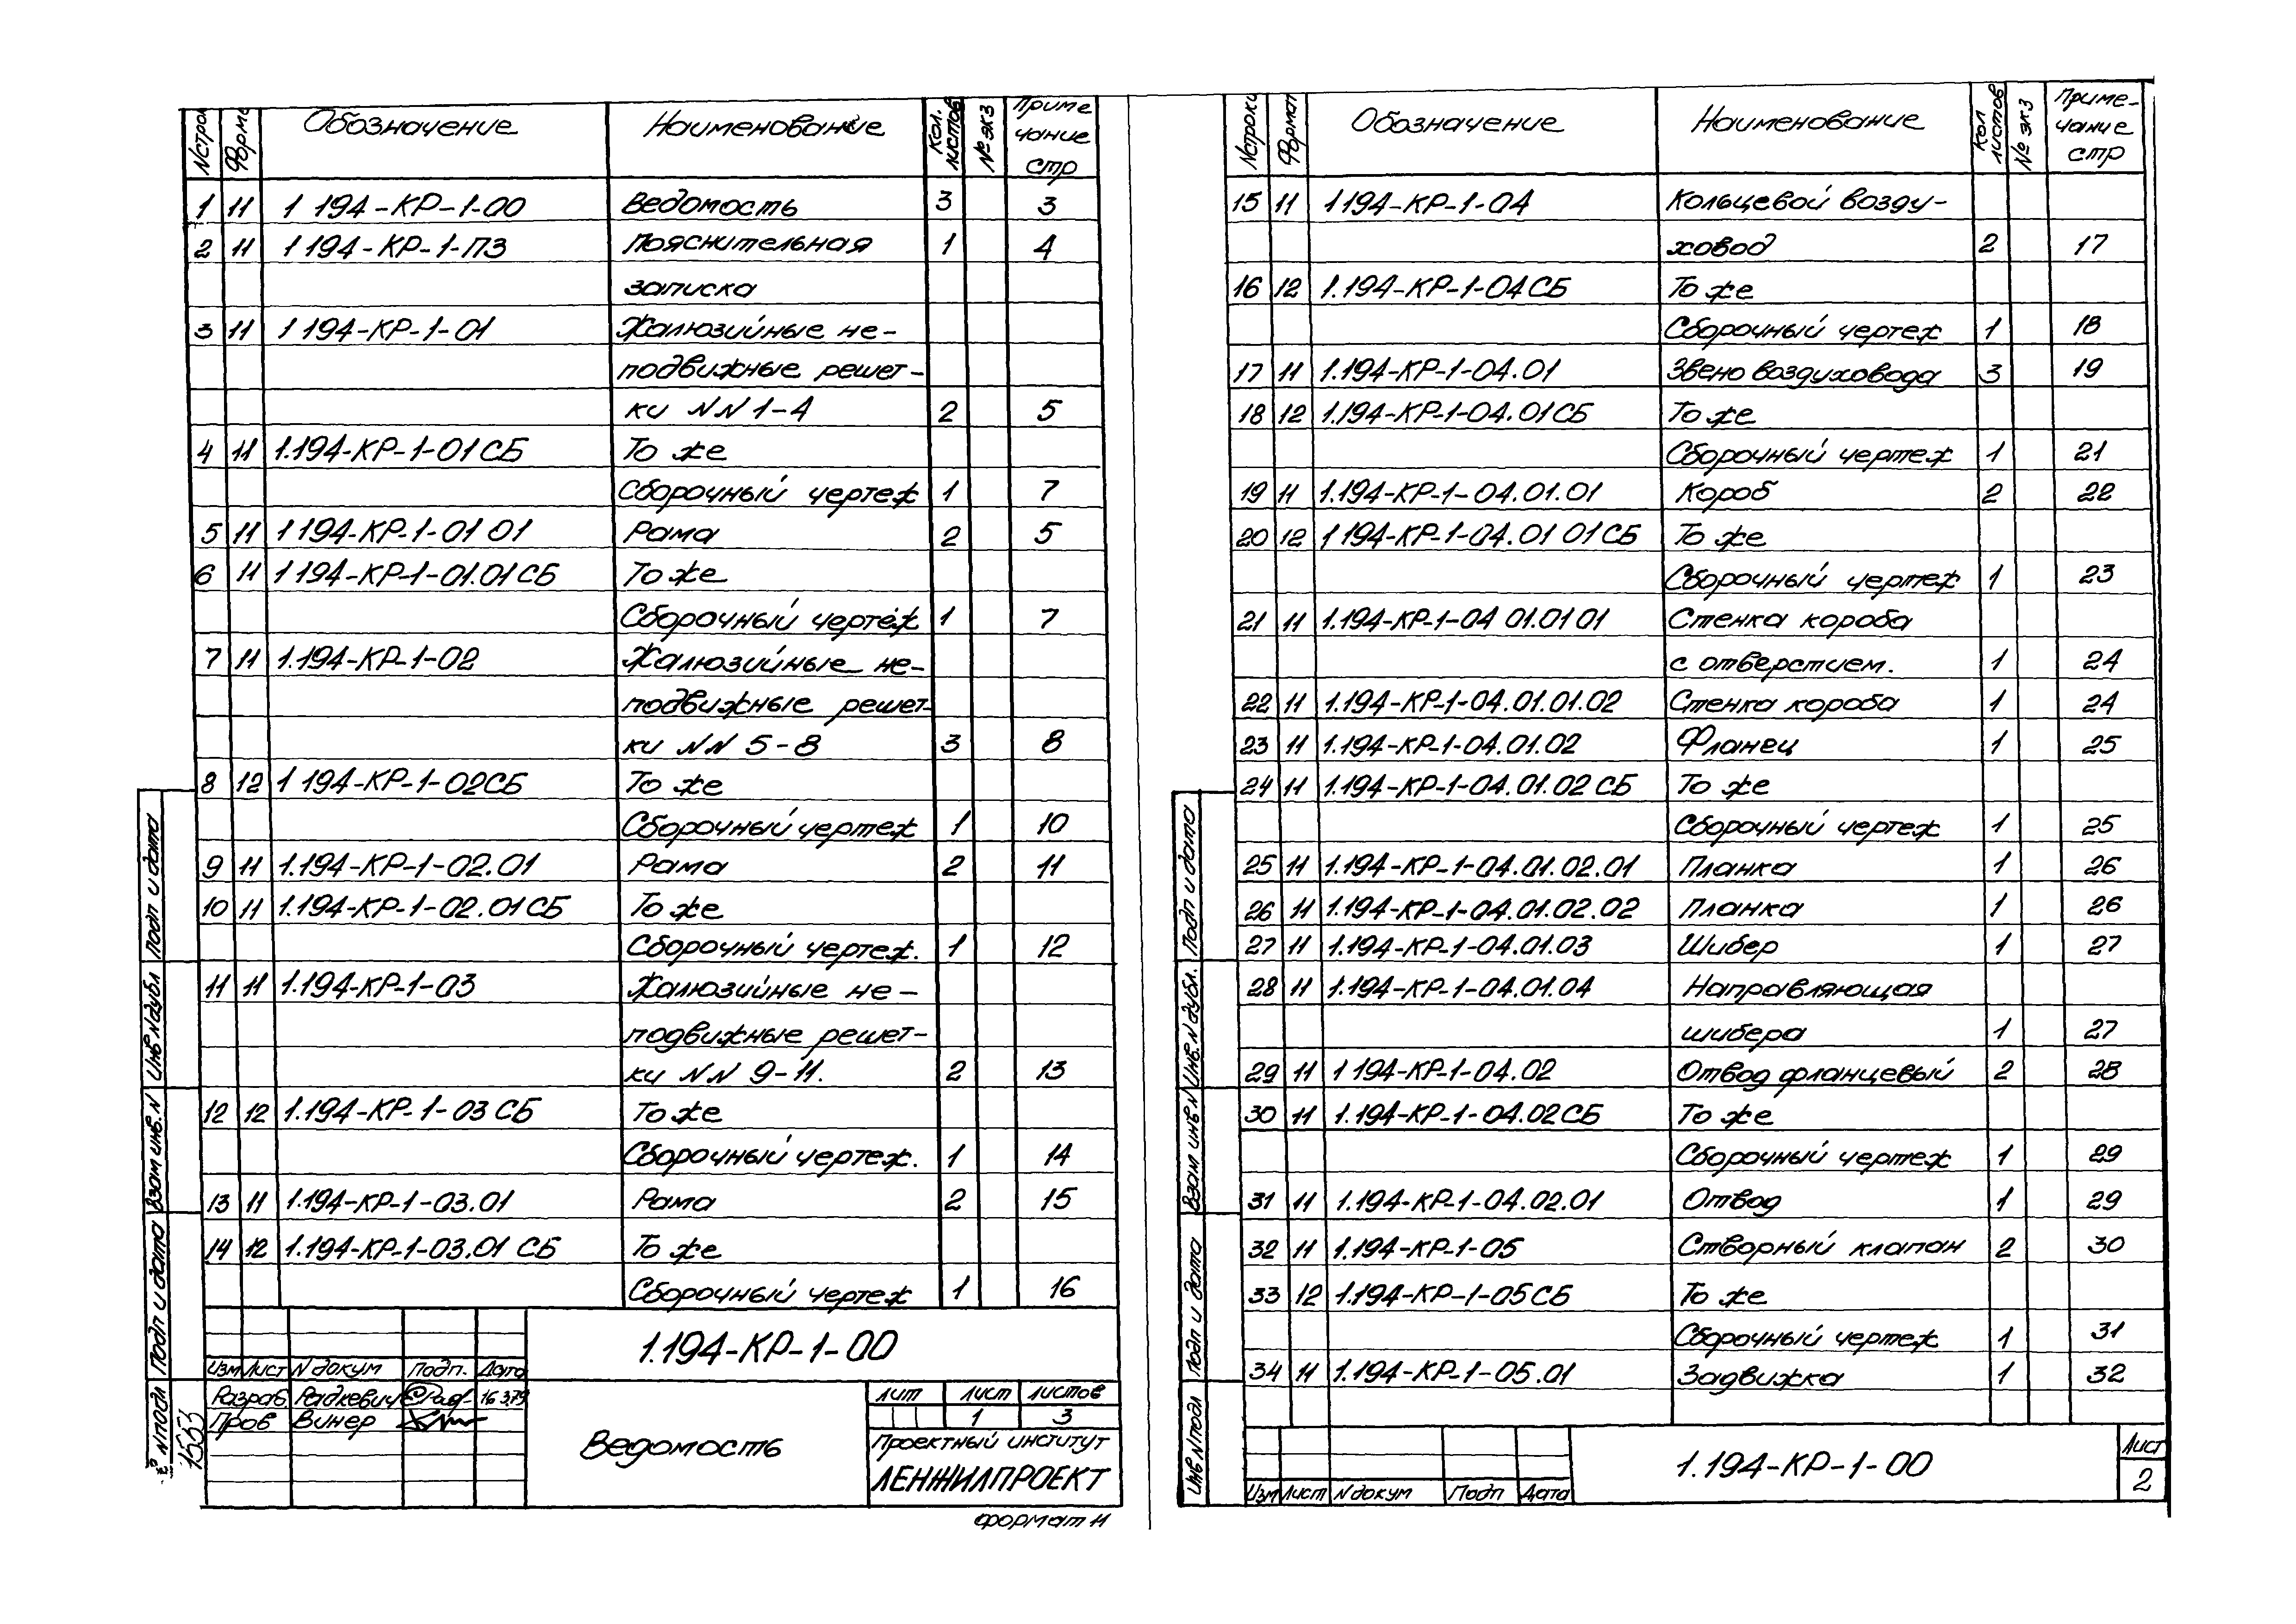 Nстрок Форма Обозначение Наименование Кол. листов № экз Приме чание стр
1 11 1 194-КР-1-00 Ведомость 3 3
2 11 1 194-КР-1-ПЗ Пояснительная 1 4
записка
3 11 1 194-КР-1-01 Жалюзийные не-
подвижные решет-
ки NN 1-4 2 5
4 11 1.194-КР-1-01СБ То же
Сборочный чертеж 1 7
5 11 1 194-КР-1-01 01 Рама 2 5
6 11 1 194-КР-1-01.01СБ То же
Сборочный чертеж 1 7
7 11 1.194-КР-1-02 Жалюзийные не-
подвижные решет-
ки NN 5-8 3 8
8 12 1 194-КР-1-02СБ То же
Сборочный чертеж 1 10
9 11 1.194-КР-1-02.01 Рама 2 11
10 11 1.194-КР-1-02.01СБ То же
Сборочный чертеж. 1 12
11 11 1.194-КР-1-03 Жалюзийные не-
подвижные решет-
ки NN 9-11. 2 13
12 12 1.194-КР-1-03 СБ То же
Сборочный чертеж. 1 14
13 11 1.194-КР-1-03.01 Рама 2 15
14 12 1.194-КР-1-03.01 СБ То же
Сборочный чертеж 1 16
Подп и дата
Инв Nдубл
Взам инв.N
Подп и дата
Nподл
1553
1.194-КР-1-00
Изм Лист N докум Подп. Дата
Разраб Радкевич 16 3.79
Пров Винер
Ведомость
Лит Лист Листов
1 3
Проектный институт
ЛЕНЖИЛПРОЕКТ
Формат 11
Nстроки Формат Обозначение Наименование Кол листов № экз Приме- чание стр
15 11 1194-КР-1-04 Кольцевой возду-
ховод 2 17
16 12 1.194-КР-1-04СБ То же
Сборочный чертеж 1 18
17 11 1.194-КР-1-04.01 Звено воздуховода 3 19
18 12 1.194-КР-1-04.01СБ То же
Сборочный чертеж 1 21
19 11 1.194-КР-1-04.01.01 Короб 2 22
20 12 1 194-КР-1-04.01 01СБ То же
Сборочный чертеж 1 23
21 11 1.194-КР-1-04 01.01 01 Стенка короба
с отверстием. 1 24
22 11 1.194-КР-1-04.01.01.02 Стенка короба 1 24
23 11 1.194-КР-1-04.01.02 Фланец 1 25
24 11 1.194-КР-1-04.01.02 СБ То же
Сборочный чертеж 1 25
25 11 1.194-КР-1-04.01.02.01 Планка 1 26
26 11 1.194-КР-1-04.01.02.02 Планка 1 26
27 11 1.194-КР-1-04.01.03 Шибер 1 27
28 11 1.194-КР-1-04.01.04 Направляющая
шибера 1 27
29 11 1 194-КР-1-04.02 Отвод фланцевый 2 28
30 11 1.194-КР-1-04.02СБ То же
Сборочный чертеж 1 29
31 11 1.194-КР-1-04.02.01 Отвод 1 29
32 11 1.194-КР-1-05 Створный клапан 2 30
33 12 1.194-КР-1-05СБ То же
Сборочный чертеж 1 31
34 11 1.194-КР-1-05.01 Задвижка 1 32
Подп и дата
Инв.Nдубл.
Взам инв N
Подп и дата
Инв Nподл
Изм Лист N докум Подп Дата
1.194-КР-1-00
Лист
2